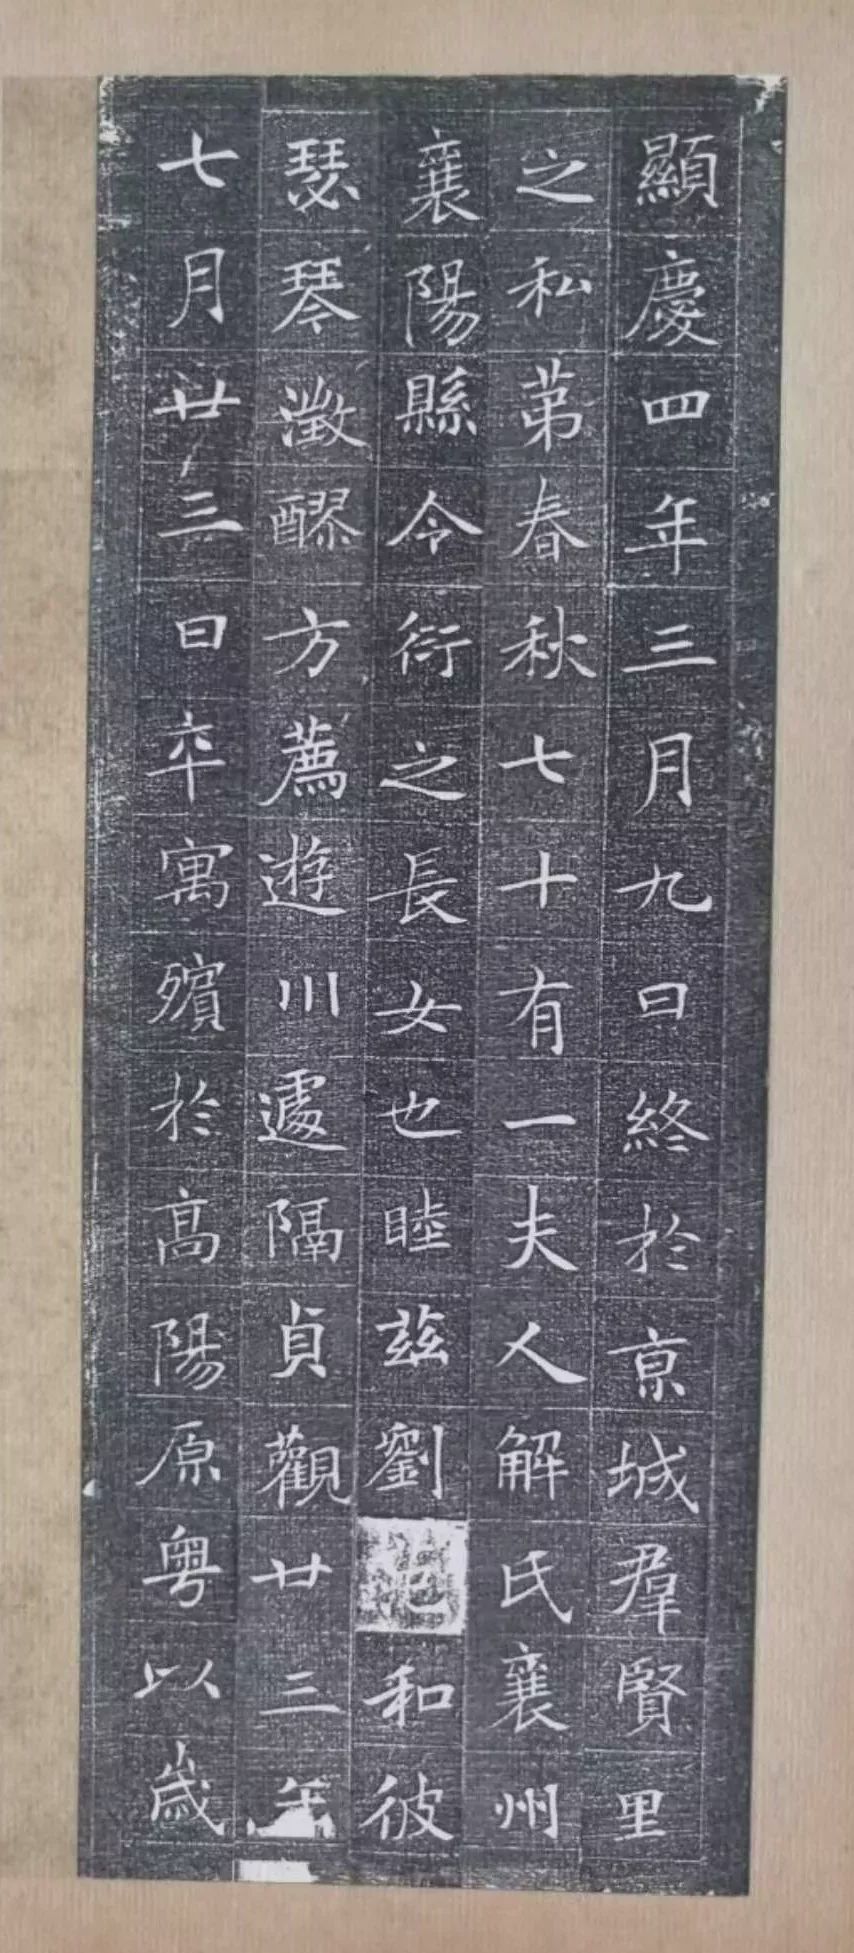 顯慶四年三月九日終於京城羣賢里
之私第春秋七十有一夫人解氏襄州
襄陽縣令衍之長女也睦兹劉和彼
瑟琴澂醪方薦遊川遽隔貞觀廿三年
七月廿三日卒寓殯於高陽原粵以歲